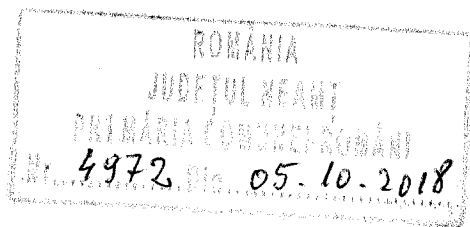 ROMÂNIA
JUDEŢUL NEAMŢ
PRIMĂRIA COMUNEI ROMÂNI
Nr. 4972 Din 05.10.2018